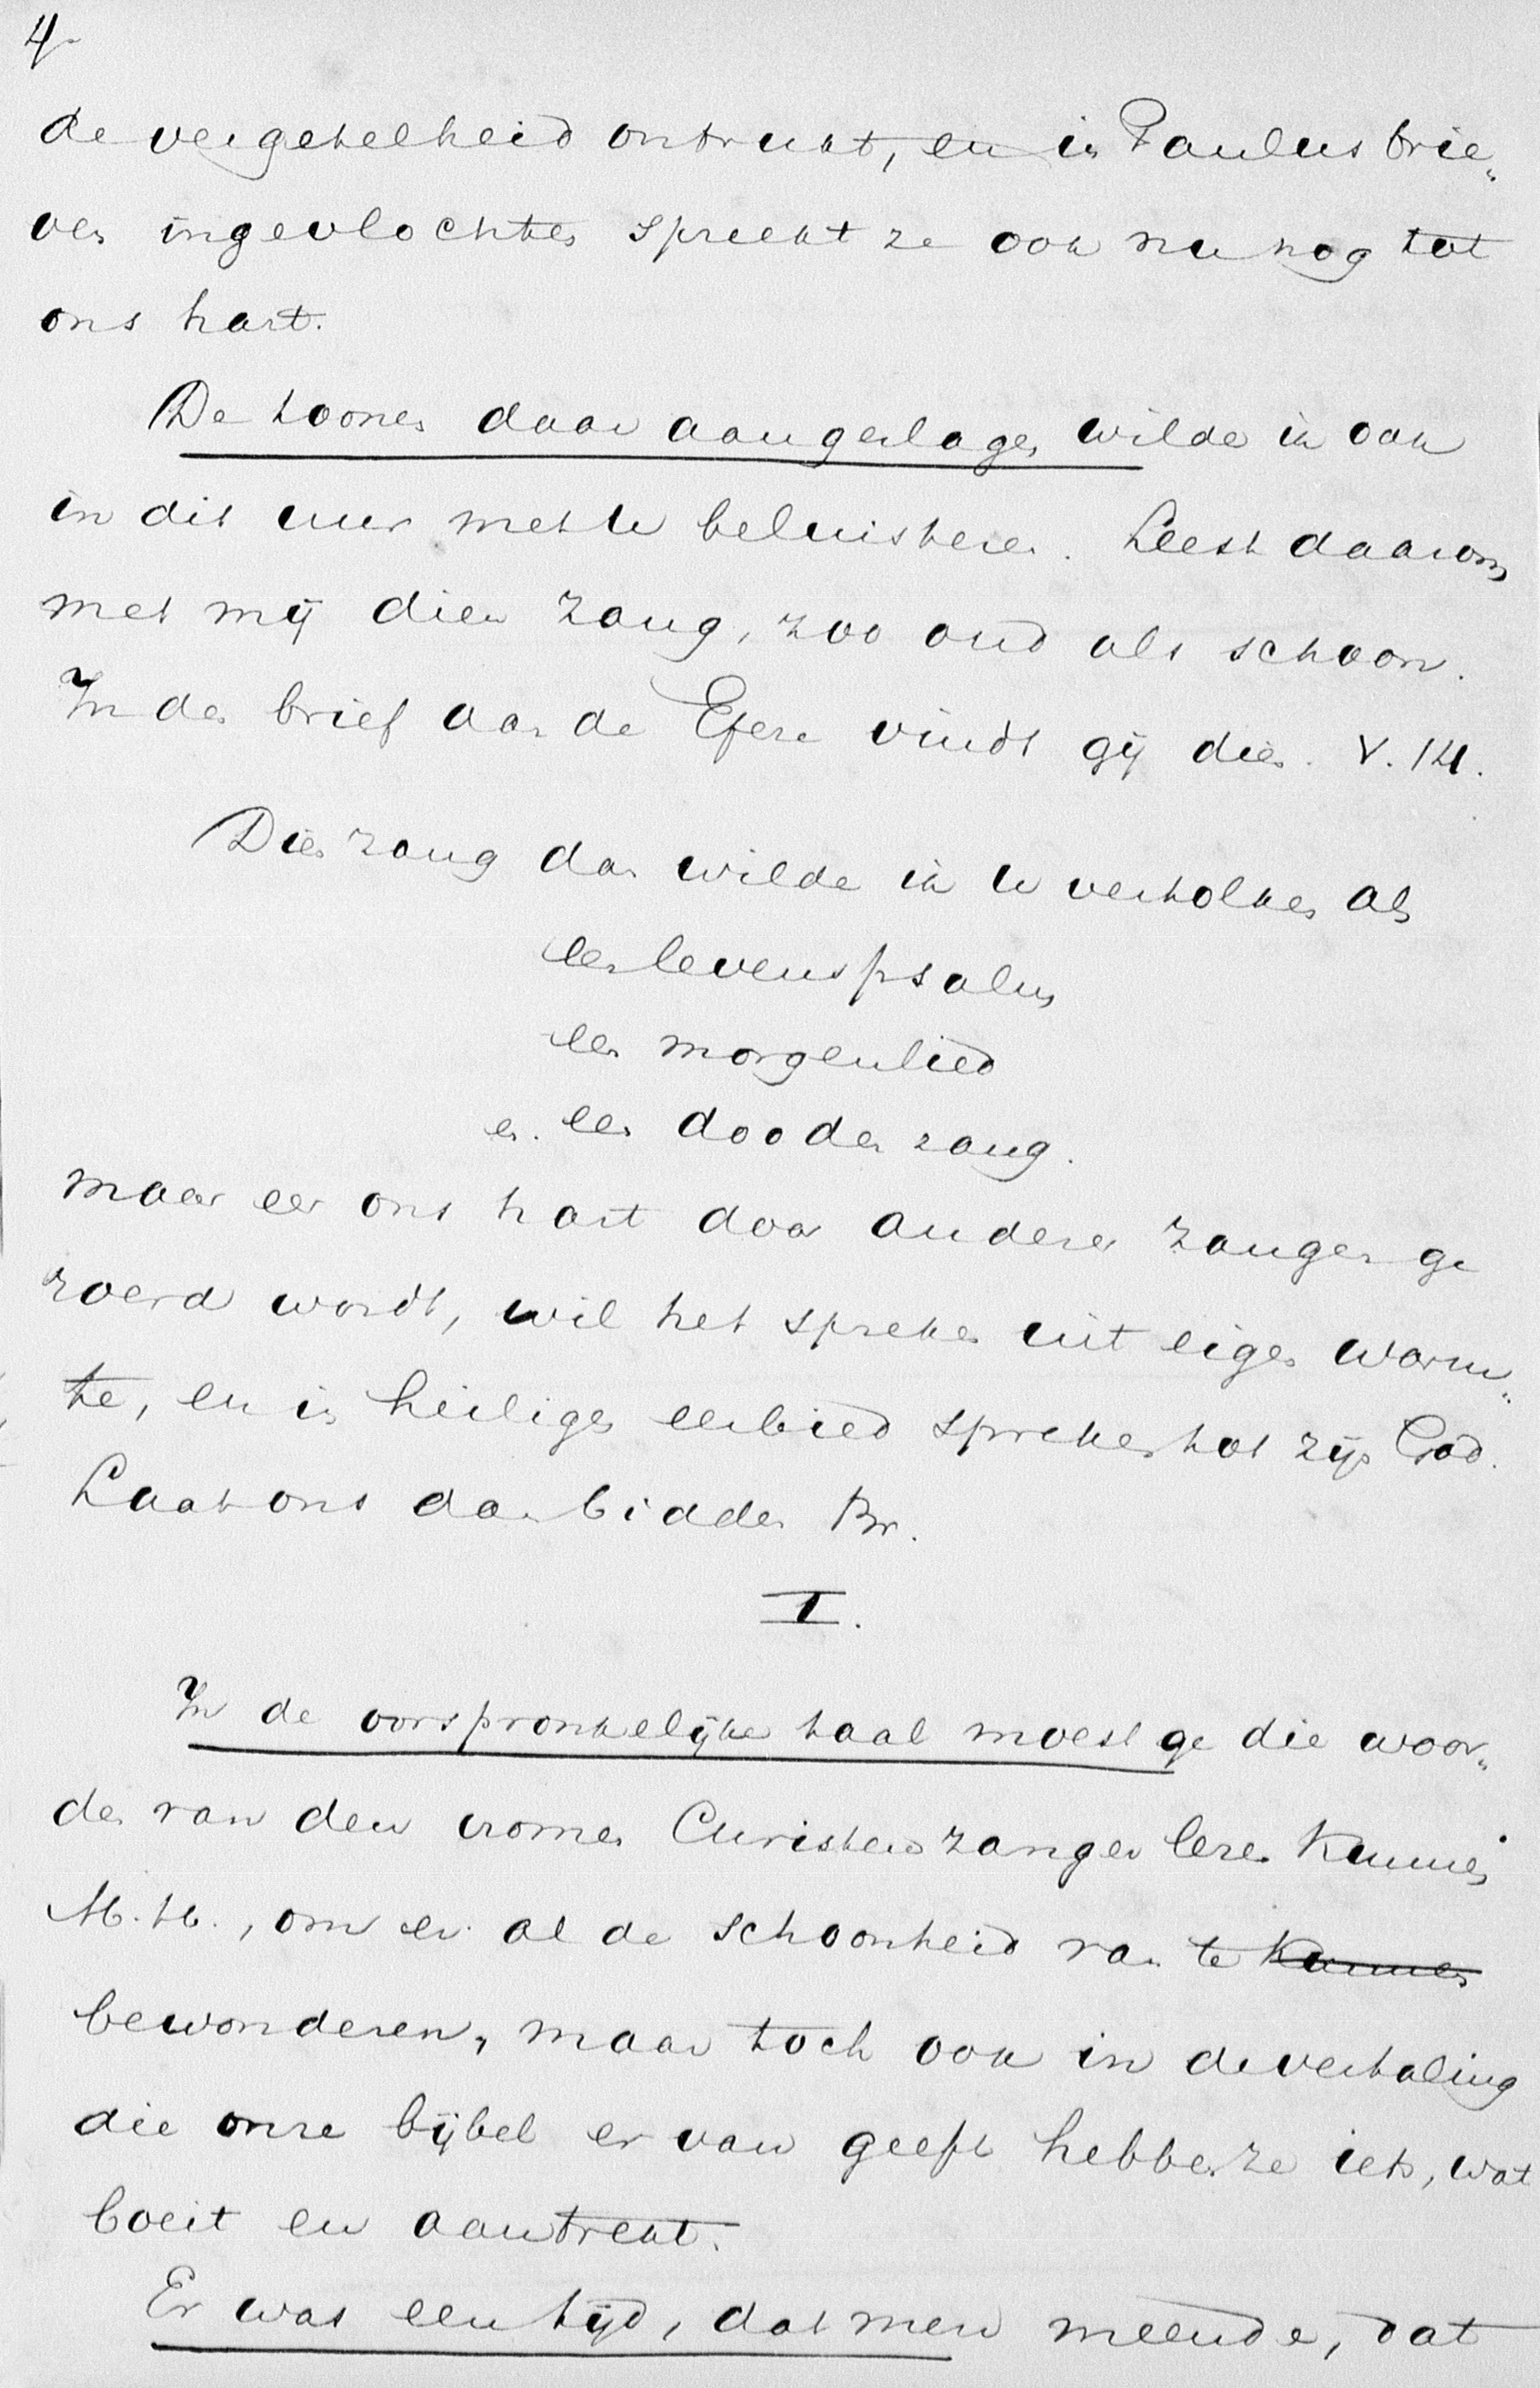 4
de vergetelheid ontrukt, en in Paulus brie„
ven ingevlochten spreekt ze ook nu nog tot
ons hart.
De toonen daar aangeslagen wilde ik ook
in dit uur met U beluisteren. Leest daarom
met mij dien zang, zoo oud als schoon.
In den brief aan de Efeze vindt gij dien. V. 14.
Dien zang dan wilde ik U vertolken als
een levenspsalm
een morgenlied
en een dooden zang.
maar eer ons hart door anderen zangen ge
roerd wordt, wil het spreken uit eigen warm„
te, en in heiligen eerbied spreken tot zijn God.
Laat ons dan bidden Br.
I.
In de oorspronkelijke taal moest ge die woor„
den van den vromen Christenzanger leren kennen
M. H., om er al de schoonheid van te kennen
bewonderen, maar toch ook in de vertaling
die onze bijbel er van geeft hebben ze iets, wat
boeit en aantrekt.
Er was een tijd, dat men meende, dat